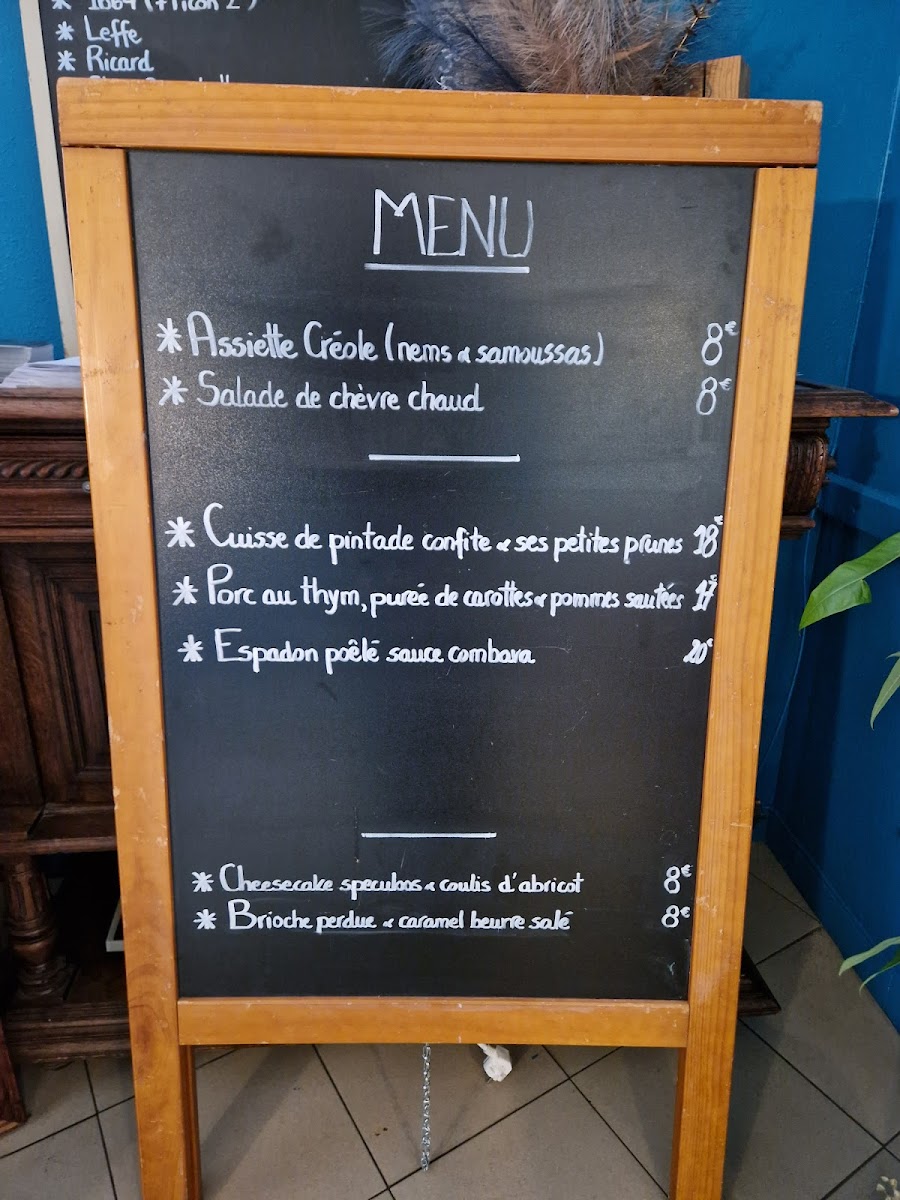 * Leffe
* Ricard
MENU
* Assiette Créole (nems & samoussas) 8€
* Salade de chèvre chaud 8€
* Cuisse de pintade confite & ses petites prunes 18€
* Porc au thym, purée de carottes & pommes sautées 17€
* Espadon poêlé sauce combava 20€
* Cheesecake speculoos & coulis d'abricot 8€
* Brioche perdue & caramel beurre salé 8€